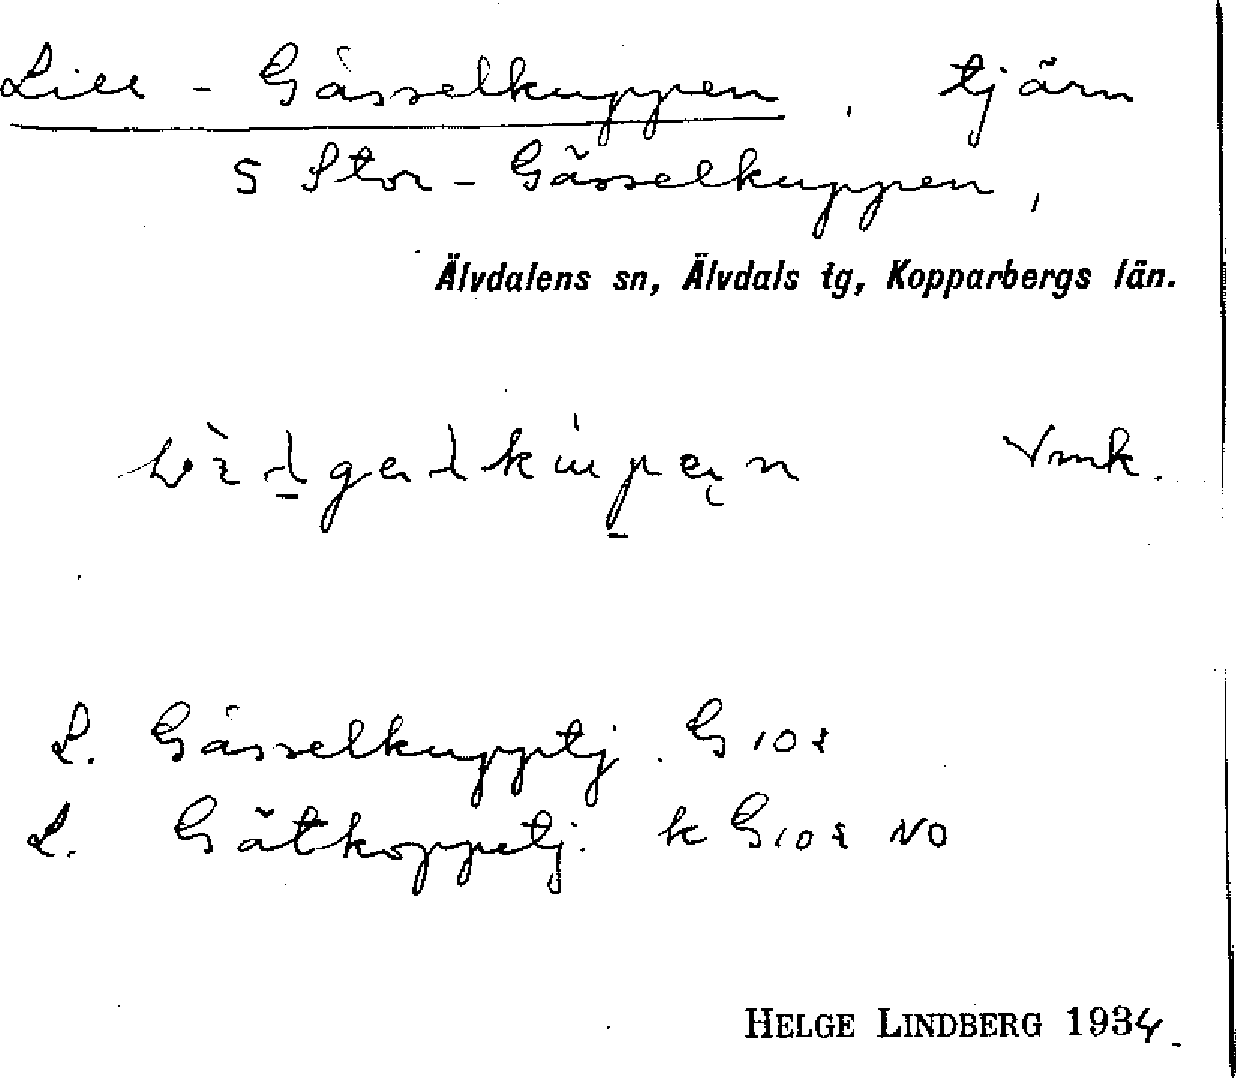 Lill-Gässelkuppen, tjärn
S Stor-Gässelkuppen,
Älvdalens sn, Älvdals tg, Kopparbergs län.
Vmk.
L. Gässelkupptj. G 102
L. Gätkopptj. k G 102 NO
HELGE LINDBERG 1934